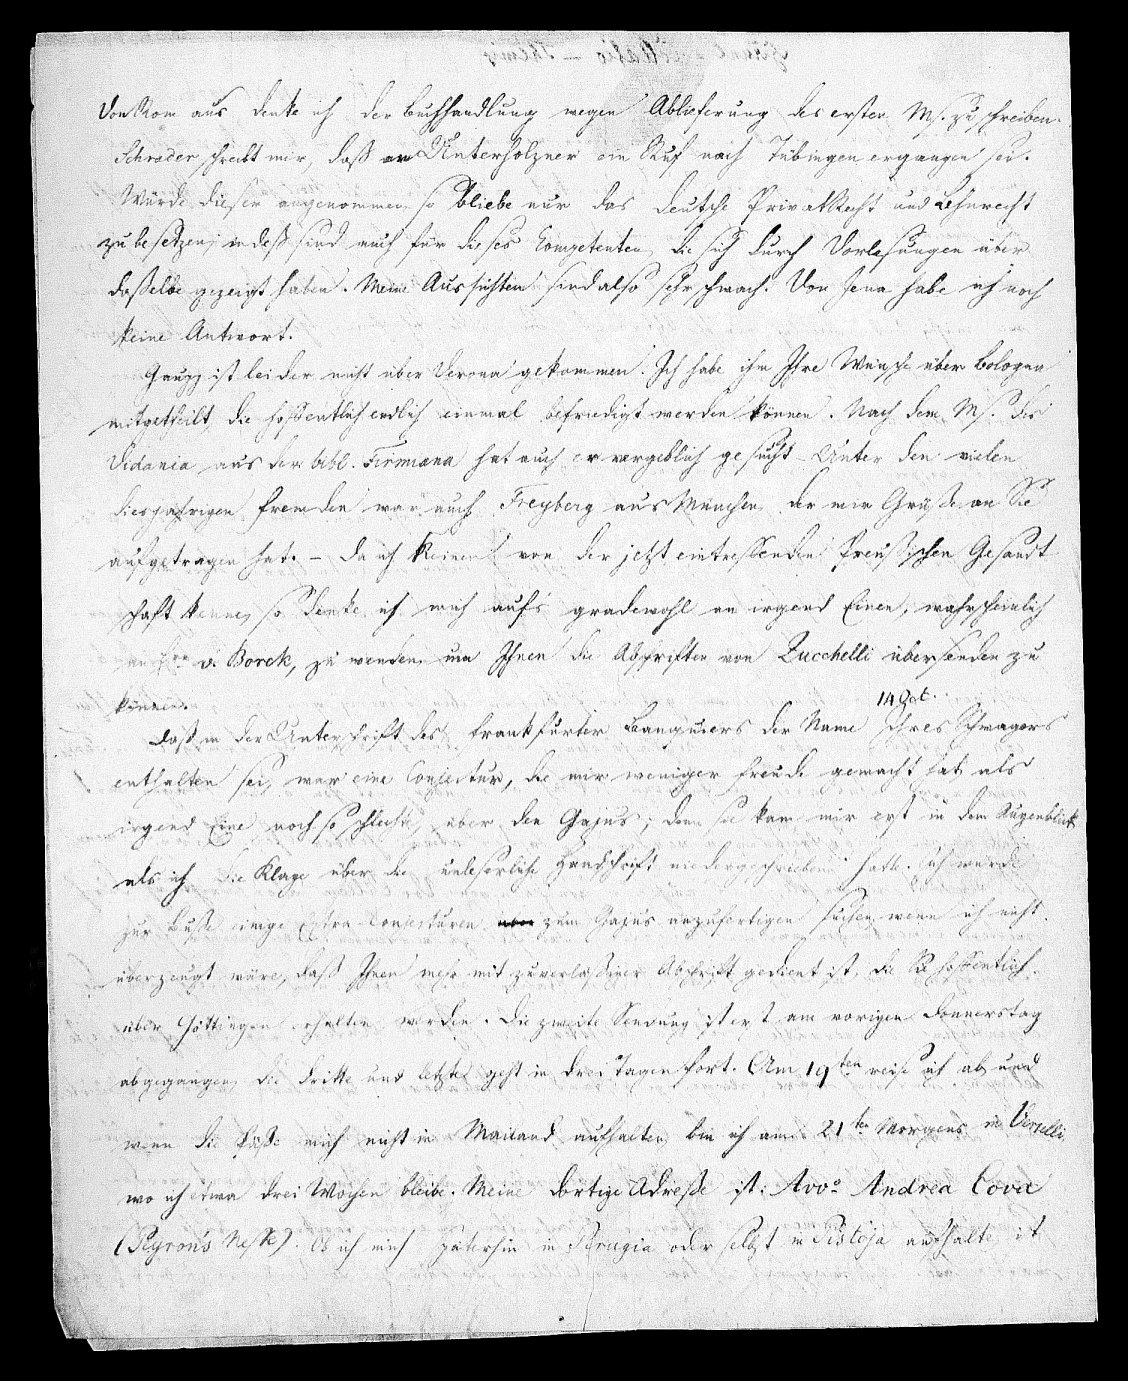 Von Rom aus denke ich der Buchhandlung wegen Ablieferung des ersten Ms. zu schreiben.
Schrader schreibt mir, daß an Unterholzner ein Ruf nach Tübingen ergangen sei.
Würde dieser angenommen so bliebe nur das deutsche Privatrecht und Lehnrecht
zu besetzen; indeß sind auch für dieses Competenten, die sich durch Vorlesungen über
daßelbe gezeigt haben. Meine Aussichten sind also sehr schwach. Von Jena habe ich noch
keine Antwort.
Gaupp ist leider nicht über Verona gekommen. Ich habe ihm Ihre Wünsche über Bologna
mitgetheilt, die hoffentlich endlich einmal befriedigt werden können. Nach dem Ms. des
Vidania aus der bibl. Firmiana hat auch er vergeblich gesucht. Unter den vielen
diesjährigen Fremden war auch Freyberg aus München, der mir Grüße an Sie
aufgetragen hat. – Da ich keinen von der jetzt eintreffenden Preußischen Gesandt
schaft kenne, so denke ich mich aufs gradewohl an irgend Einen, wahrscheinlich
an Hrn v. Borck, zu wenden, um Ihnen die Abschriften von Zucchelli übersenden zu
können.
14 Oct.
Daß in der Unterschrift des Frankfurter Banquiers der Name Ihres Schwagers
enthalten sei, war eine Conjectur, die mir weniger Freude gemacht hat als
irgend Eine noch so schlechte, über den Gajus; denn sie kam mir erst in dem Augenblick
als ich die Klage über die unleserliche Handschrift niedergeschrieben hatte. Ich würde
zur Buße einige Extra Conjecturen zum Gajus anzufertigen suchen, wenn ich nicht
überzeugt wäre, daß Ihnen mehr mit zuverläßiger Abschrift gedient ist, die Sie hoffentlich
über Göttingen erhalten werden. Die zweite Sendung ist erst am vorigen Donnerstag
abgegangen, die dritte und letzte geht in drei Tagen fort. Am 19ten reise ich ab und
wenn die Päße mich nicht in Mailand aufhalten bin ich am 21ten Morgens in Vercelli
wo ich etwa drei Wochen bleibe. Meine dortige Adreße ist: Avvo Andrea Cova
(Peyron's Neffe). Ob ich mich späterhin in Perugia oder selbst in Pistoja aufhalte ist